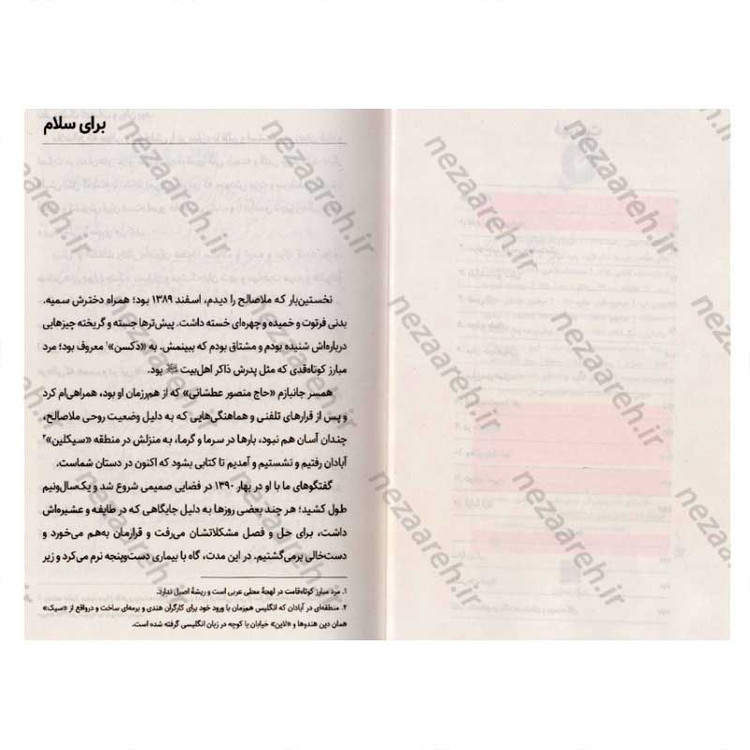 برای سلام
نخستین‌بار که ملاصالح را دیدم، اسفند ۱۳۸۹ بود؛ همراه دخترش سمیه.
بدنی فرتوت و خمیده و چهره‌ای خسته داشت. پیش‌ترها جسته و گریخته چیزهایی
درباره‌اش شنیده بودم و مشتاق بودم که ببینمش. به «دَکسن»۱ معروف بود؛ مرد
مبارز کوتاه‌قدی که مثل پدرش ذاکر اهل‌بیت بود.
همسر جانبازم «حاج منصور عطشانی» که از هم‌رزمان او بود، همراهی‌ام کرد
و پس از قرارهای تلفنی و هماهنگی‌هایی که به دلیل وضعیت روحی ملاصالح،
چندان آسان هم نبود، بارها در سرما و گرما، به منزلش در منطقه «سیکلین»۲
آبادان رفتیم و نشستیم و آمدیم تا کتابی بشود که اکنون در دستان شماست.
گفتگوهای ما با او در بهار ۱۳۹۰ در فضایی صمیمی شروع شد و یک‌سال‌ونیم
طول کشید؛ هر چند بعضی روزها به دلیل جایگاهی که در طایفه و عشیره‌اش
داشت، برای حل و فصل مشکلاتشان می‌رفت و قرارمان به‌هم می‌خورد و
دست‌خالی برمی‌گشتیم. در این مدت، گاه با بیماری دست‌وپنجه نرم می‌کرد و زیر
۱. مرد مبارز کوتاه‌قامت در لهجهٔ محلی عربی است و ریشهٔ اصیل ندارد.
۲. منطقه‌ای در آبادان که انگلیس هم‌زمان با ورود خود برای کارگران هندی و برمه‌ای ساخت و درواقع از «سیک»
همان دین هندوها و «لاین» خیابان یا کوچه در زبان انگلیسی گرفته شده است.
nezaareh.ir
nezaareh.ir
nezaareh.ir
nezaareh.ir
nezaareh.ir
nezaareh.ir
nezaareh.ir
nezaareh.ir
nezaareh.ir
nezaareh.ir
nezaareh.ir
nezaareh.ir